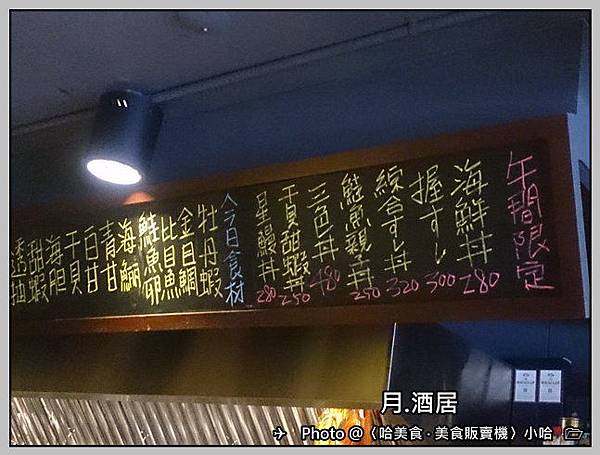 午間限定
海鮮丼 280
握すし 300
綜合すし丼 320
鮭魚親子丼 250
三色丼 480
干貝甜蝦丼 250
星鰻丼 280
今日食材
牡丹蝦
金目鯛
比目魚
鮭魚卵
海鰤
青甘
白甘
干貝
海胆
甜蝦
透抽
月.酒居
Photo @〈哈美食 · 美食販賣機〉小哈